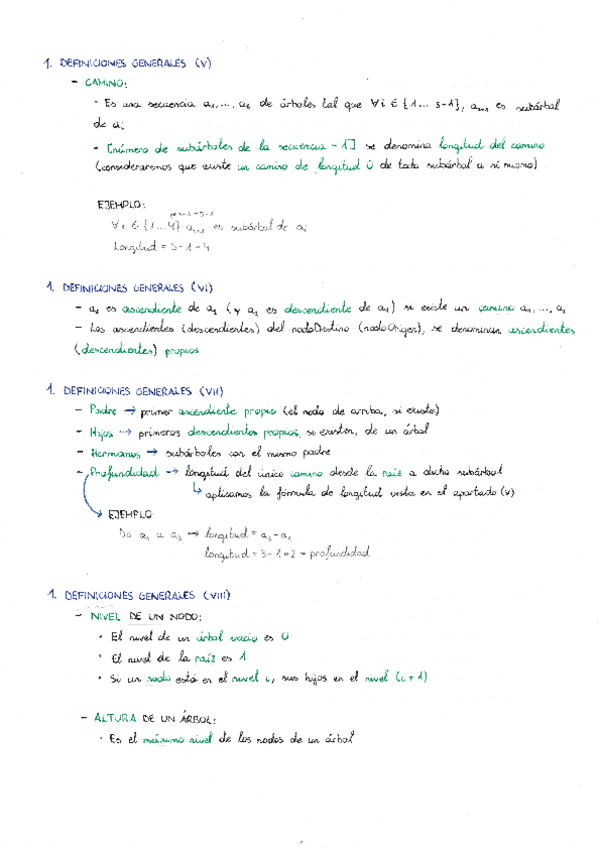 1. DEFINICIONES GENERALES (V)
- CAMINO:
· Es una secuencia a₁,..., a₅ de árboles tal que ∀i ∈ {1... s-1}, aᵢ₊₁ es subárbol
de aᵢ
- [número de subárboles de la secuencia - 1] se denomina longitud del camino
(consideraremos que existe un camino de longitud 0 de todo subárbol a sí mismo)
EJEMPLO:
∀i ∈ {1...4} aᵢ₊₁ es subárbol de aᵢ
Longitud = 5-1 = 4
1. DEFINICIONES GENERALES (VI)
- a₁ es ascendiente de a₁ (y a₁ es descendiente de a₁) si existe un camino a₁,..., a₁
- Los ascendientes (descendientes) del nodoDestino (nodoOrigen), se denominan ascendientes
(descendientes) propios
1. DEFINICIONES GENERALES (VII)
- Padre → primer ascendiente propio (el nodo de arriba, si existe)
- Hijos → primeros descendientes propios, si existen, de un árbol
- Hermanos → subárboles con el mismo padre
- Profundidad → longitud del único camino desde la raíz a dicho subárbol
↳ aplicamos la fórmula de longitud vista en el apartado (V)
EJEMPLO:
De a₁ a a₃ → longitud = a₃ - a₁
longitud = 3-1 = 2 = profundidad
1. DEFINICIONES GENERALES (VIII)
- NIVEL DE UN NODO:
· El nivel de un árbol vacío es 0
· El nivel de la raíz es 1
· Si un nodo está en el nivel i, sus hijos en el nivel (i+1)
- ALTURA DE UN ÁRBOL:
· Es el máximo nivel de los nodos de un árbol